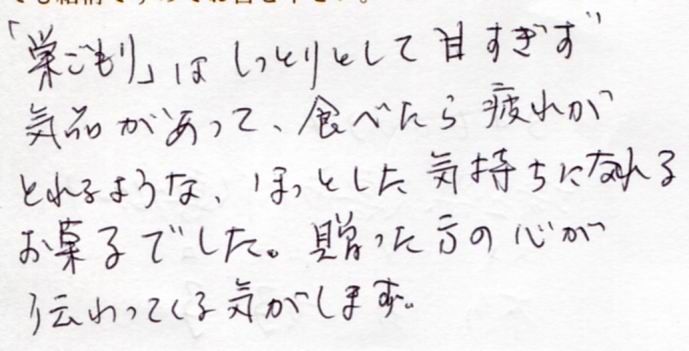 「巣ごもり」はしっとりとして甘すぎず
気品があって、食べたら疲れが
とれるような、ほっとした気持ちになれる
お菓子でした。贈った方の心が
伝わってくる気がします。